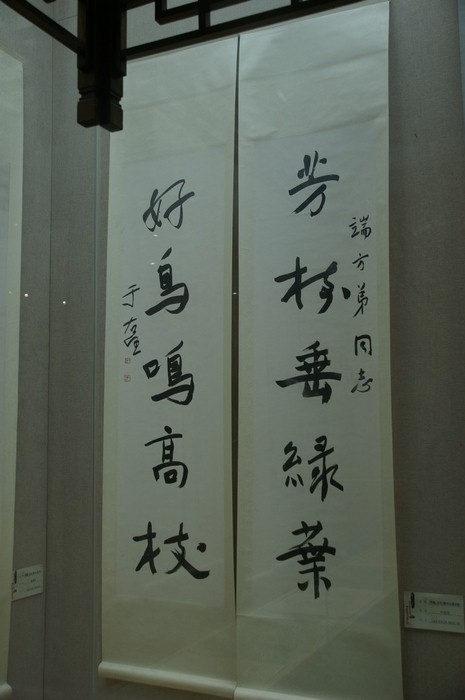 端方弟同志
芳樹垂綠葉
好鳥鳴高枝
于右任